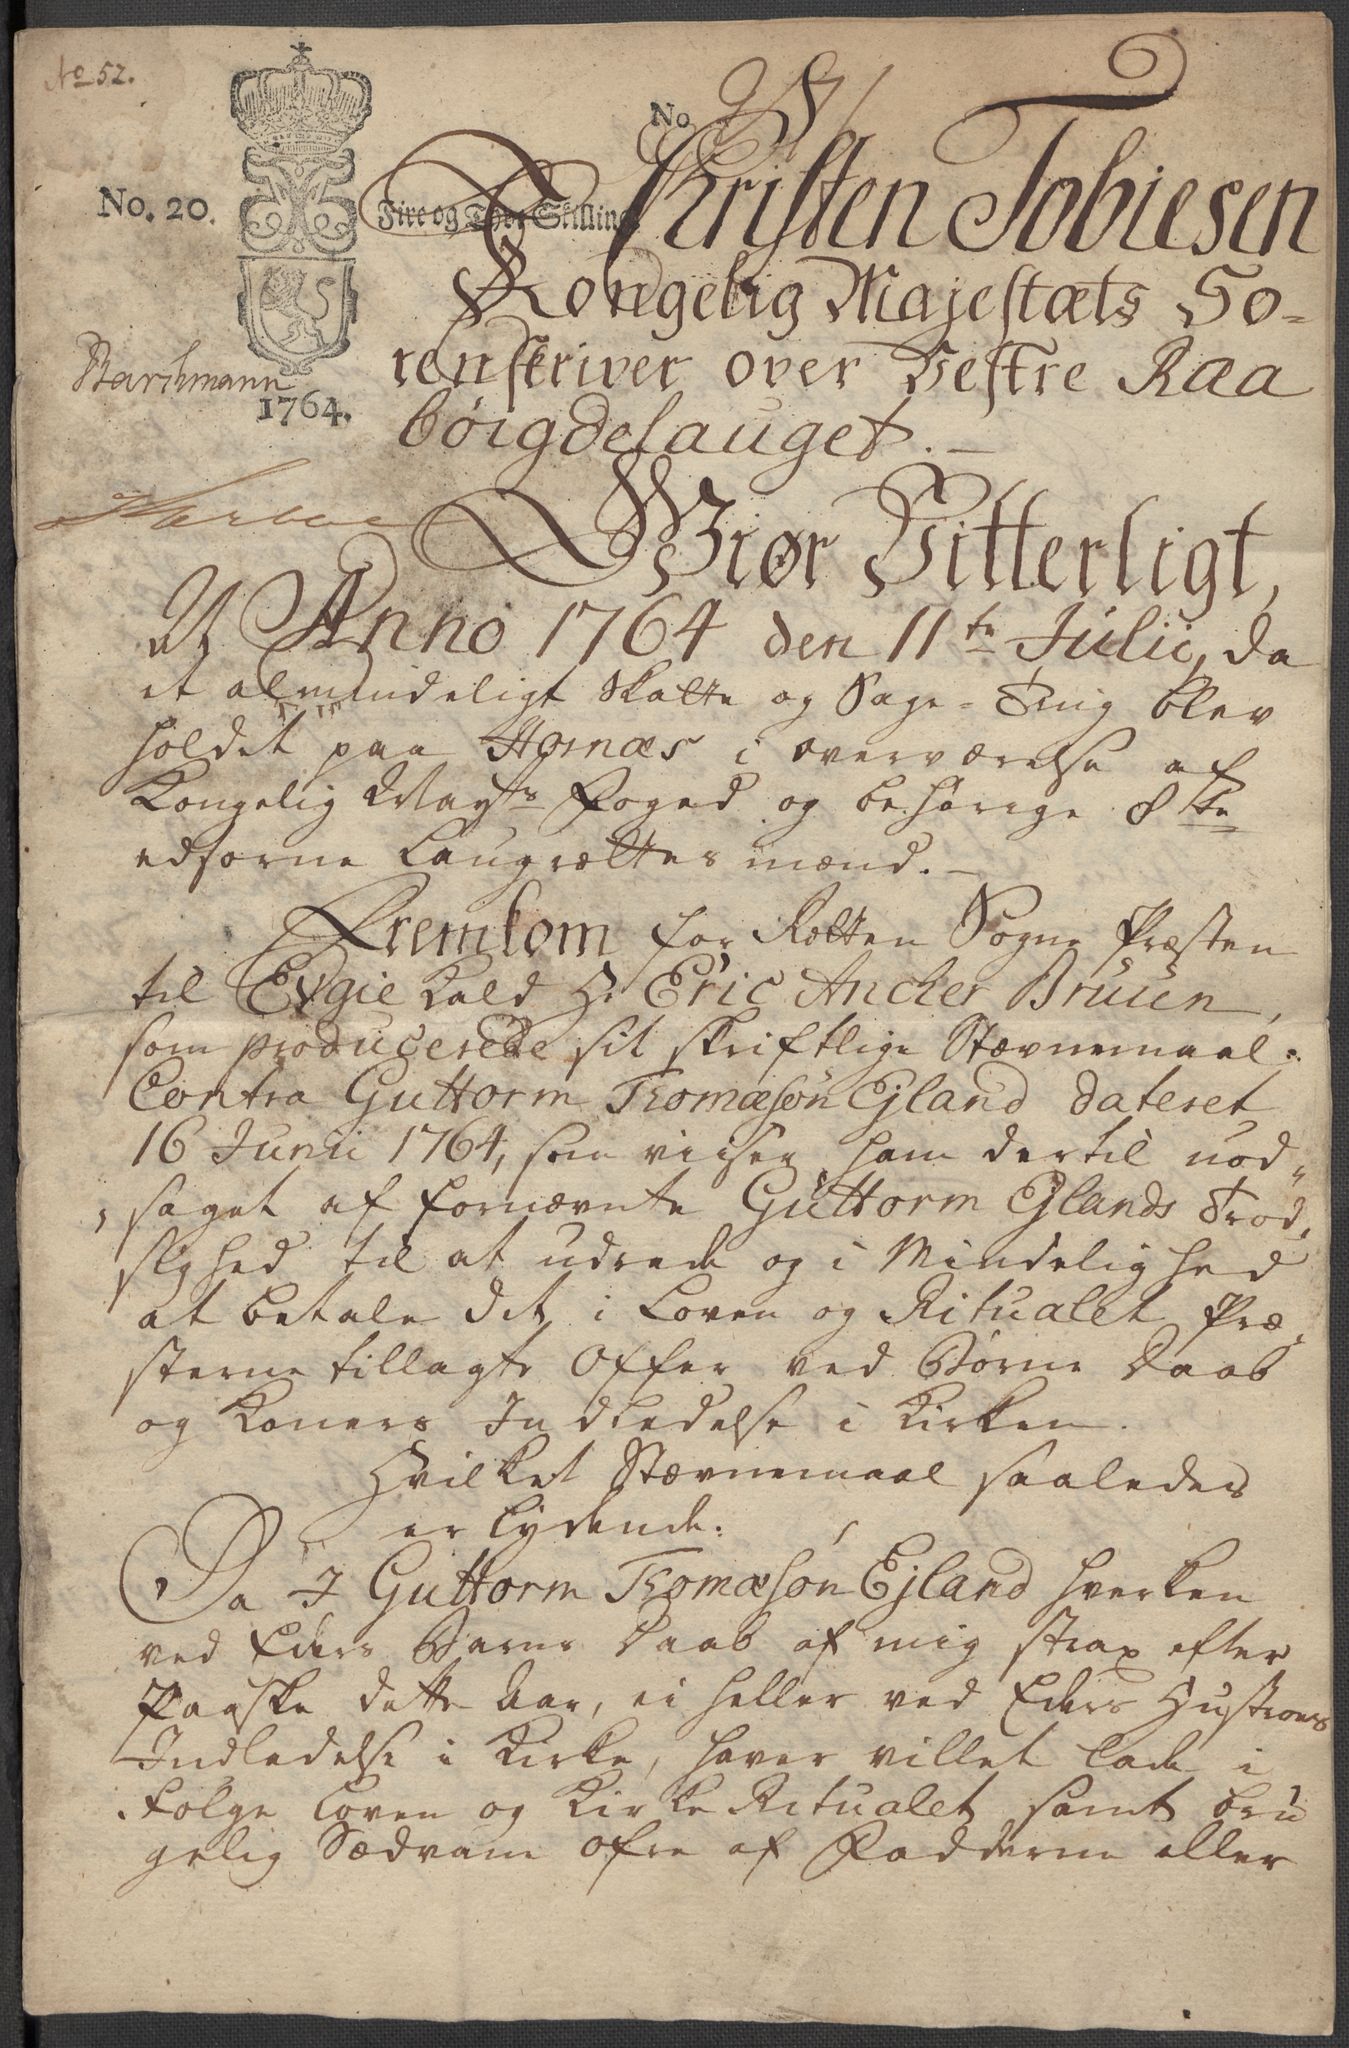 No 52.
No. 20.
No
Fire og Tyve Skilling.
Barthmann
1764.
Christen Tobiesen
Kongelig Majestæts So-
renskriver over Vestre Raa
böigdelauget. —
Giør Vitterligt,
At Anno 1764 den 11te Julii, da
et almindeligt Skatte og Sage-Ting blev
holdet paa Hornæs i overværelse af
Kongelig Mayts Foged og behörige 8te
edsorne Laugrættes mænd. —
Fremkom for Rætten Sogne Præsten
til Evgie Kald Hr Eric Ancher Bruun,
som producerede sit skriftlige Stævnemaal
Contra Guttorm Tomæsøn Ejland dateret
16 Junii 1764, som viiser ham dertil nød-
saget af fornævnte Guttorm Ejlands Trod-
sighed til at udrede og i Mindelighed
at betale det i Loven og Ritualet Præ-
sterne tillagte Offer ved Börne Daab
og Koners Indledelse i Kirken.
Hvilket Stævnemaal saaledes
er lydende:
Da I Guttorm Tomæsøn Ejland hverken
ved Eders Barns Daab af mig strax efter
Paaske dette Aar, ei heller ved Eders Hustrues
Indledelse i Kirke, haver villet lade i
fölge Loven og Kirke Ritualet samt brü
gelig Sædvane ofre af Fadderne eller